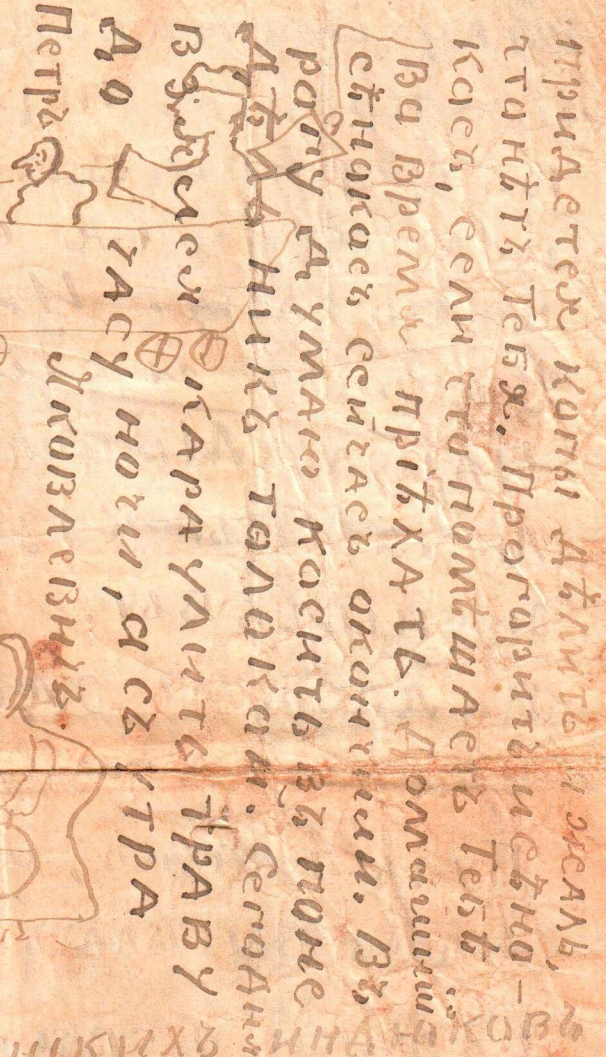 придется копы дѣлить и жаль,
что нѣтъ Тебя. Прогаритъ и сѣна-
касъ, если что памѣшаетъ Тебѣ
ва время пріѣхать. Домашній
сѣнакасъ сейчасъ окончили. Въ
рощу думаю косить въ поне
дѣльникъ толокай. Сегодня
взялся караулить траву
до часу ночи, а съ утра
Петръ Яковлевичъ.